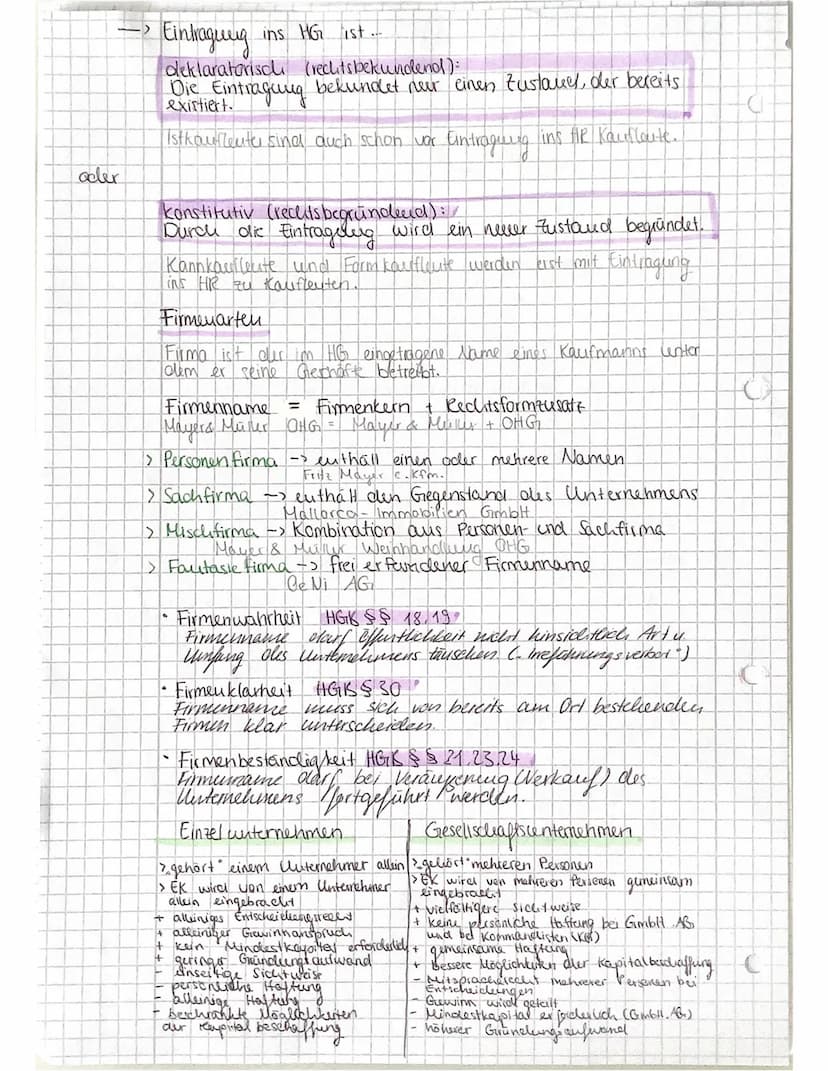 —> Eintragung ins HG ist...
deklaratorisch (rechtsbekundend):
Die Eintragung bekundet nur einen Zustand, der bereits
existiert.
Istkaufleute sind auch schon vor Eintragung ins HR Kaufleute.
oder
konstitutiv (rechtsbegründend):
Durch die Eintragung wird ein neuer Zustand begründet.
Kannkaufleute und Formkaufleute werden erst mit Eintragung
ins HR zu Kaufleuten.
Firmenarten
Firma ist der im HG eingetragene Name eines Kaufmanns unter
dem er seine Geschäfte betreibt.
Firmenname = Firmenkern + Rechtsformzusatz
Mayer & Müller OHG = Mayer & Müller + OHG
> Personenfirma -> enthält einen oder mehrere Namen
Fritz Mayer e.Kfm.
> Sachfirma -> enthält den Gegenstand des Unternehmens
Mallorca-Immobilien GmbH
> Mischfirma -> Kombination aus Personen- und Sachfirma
Mayer & Müller Weinhandlung OHG
> Fantasiefirma -> frei erfundener Firmenname
BeNi AG
• Firmenwahrheit HGB §§ 18,19
Firmenname darf Öffentlichkeit nicht hinsichtlich Art u.
Umfang des Unternehmens täuschen („Irreführungsverbot")
• Firmenklarheit HGB § 30
Firmenname muss sich von bereits am Ort bestehenden
Firmen klar unterscheiden.
• Firmenbeständigkeit HGB §§ 21,23,24
Firmenname darf bei Veräußerung (Verkauf) des
Unternehmens fortgeführt werden.
Einzelunternehmen
> „gehört" einem Unternehmer allein
> EK wird von einem Unternehmer
allein eingebracht
+ alleiniges Entscheidungsrecht
+ alleiniger Gewinnanspruch
+ kein Mindestkapital erforderlich
+ geringer Gründungsaufwand
- einseitige Sichtweise
- persönliche Haftung
- alleinige Haftung
- beschränkte Möglichkeiten
der Kapitalbeschaffung
Gesellschaftsunternehmen
> „gehört" mehreren Personen
> EK wird von mehreren Personen gemeinsam
eingebracht
+ vielfältigere Sichtweise
+ keine persönliche Haftung bei GmbH, AG
und bei Kommanditisten (KG)
+ gemeinsame Haftung
+ bessere Möglichkeiten der Kapitalbeschaffung
- Mitspracherecht mehrerer Personen bei
Entscheidungen
- Gewinn wird geteilt
- Mindestkapital erforderlich (GmbH, AG)
- höherer Gründungsaufwand